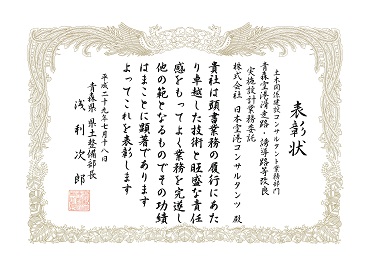 表彰状
土木関係建設コンサルタント業務部門
青森空港滑走路・誘導路等改良
実施設計業務委託
株式会社 日本空港コンサルタンツ 殿
貴社は頭書業務の履行にあた
り卓越した技術と旺盛な責任
感をもってよく業務を完遂し
他の範となるものでその功績
はまことに顕著であります
よってこれを表彰します
平成二十九年七月十八日
青森県 県土整備部長
浅利次郎